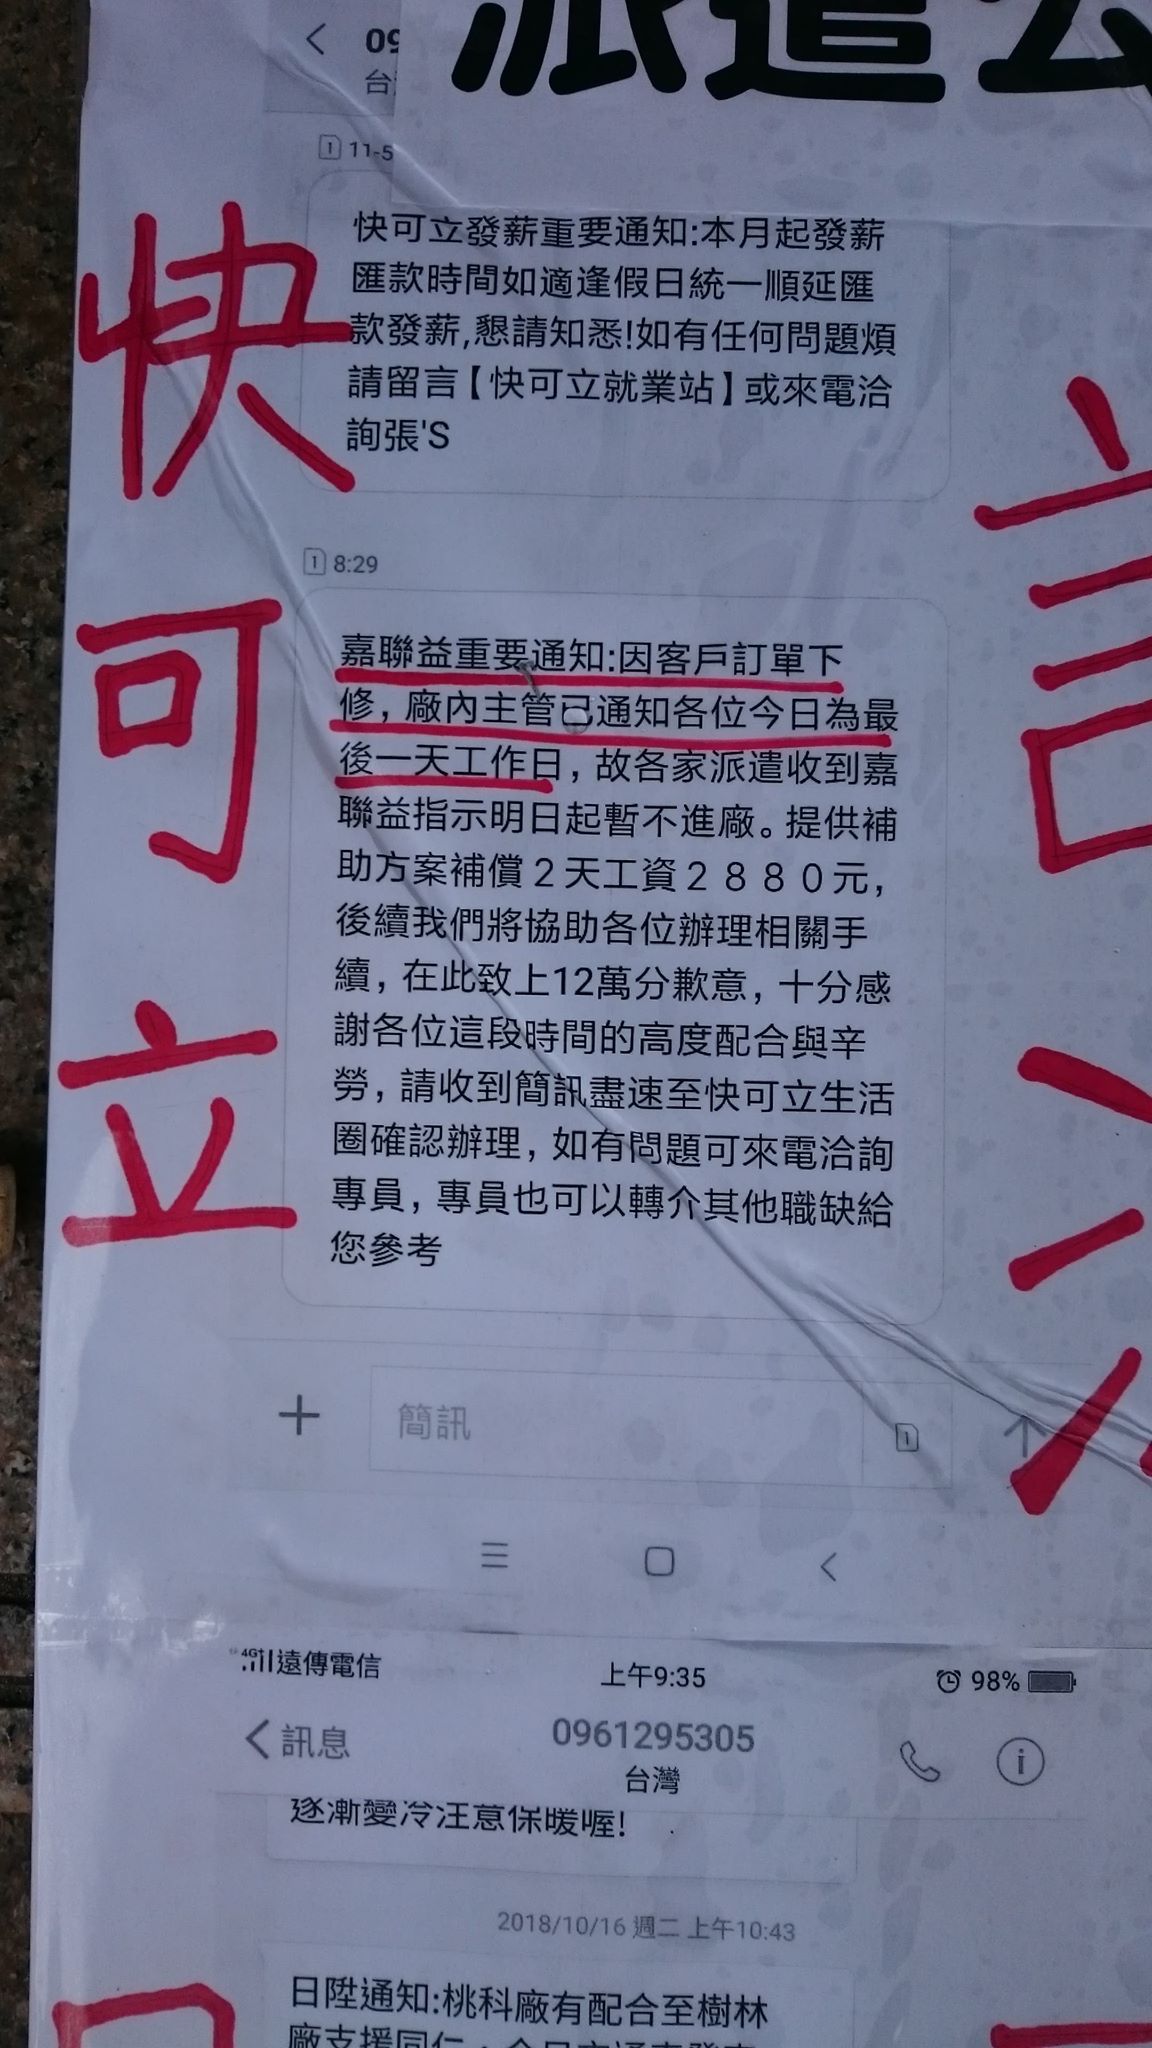 派遣公
09
台
11-5
快可立發薪重要通知:本月起發薪
匯款時間如適逢假日統一順延匯
款發薪,懇請知悉!如有任何問題煩
請留言【快可立就業站】或來電洽
詢張'S
8:29
嘉聯益重要通知:因客戶訂單下
修，廠內主管已通知各位今日為最
後一天工作日，故各家派遣收到嘉
聯益指示明日起暫不進廠。提供補
助方案補償２天工資２８８０元，
後續我們將協助各位辦理相關手
續，在此致上12萬分歉意，十分感
謝各位這段時間的高度配合與辛
勞，請收到簡訊盡速至快可立生活
圈確認辦理，如有問題可來電洽詢
專員，專員也可以轉介其他職缺給
您參考
簡訊
快可立
4G 遠傳電信 上午9:35 98%
訊息 0961295305
台灣
逐漸變冷注意保暖喔!
2018/10/16 週二 上午10:43
日陞通知:桃科廠有配合至樹林
廠支援同仁，今日交通車發車